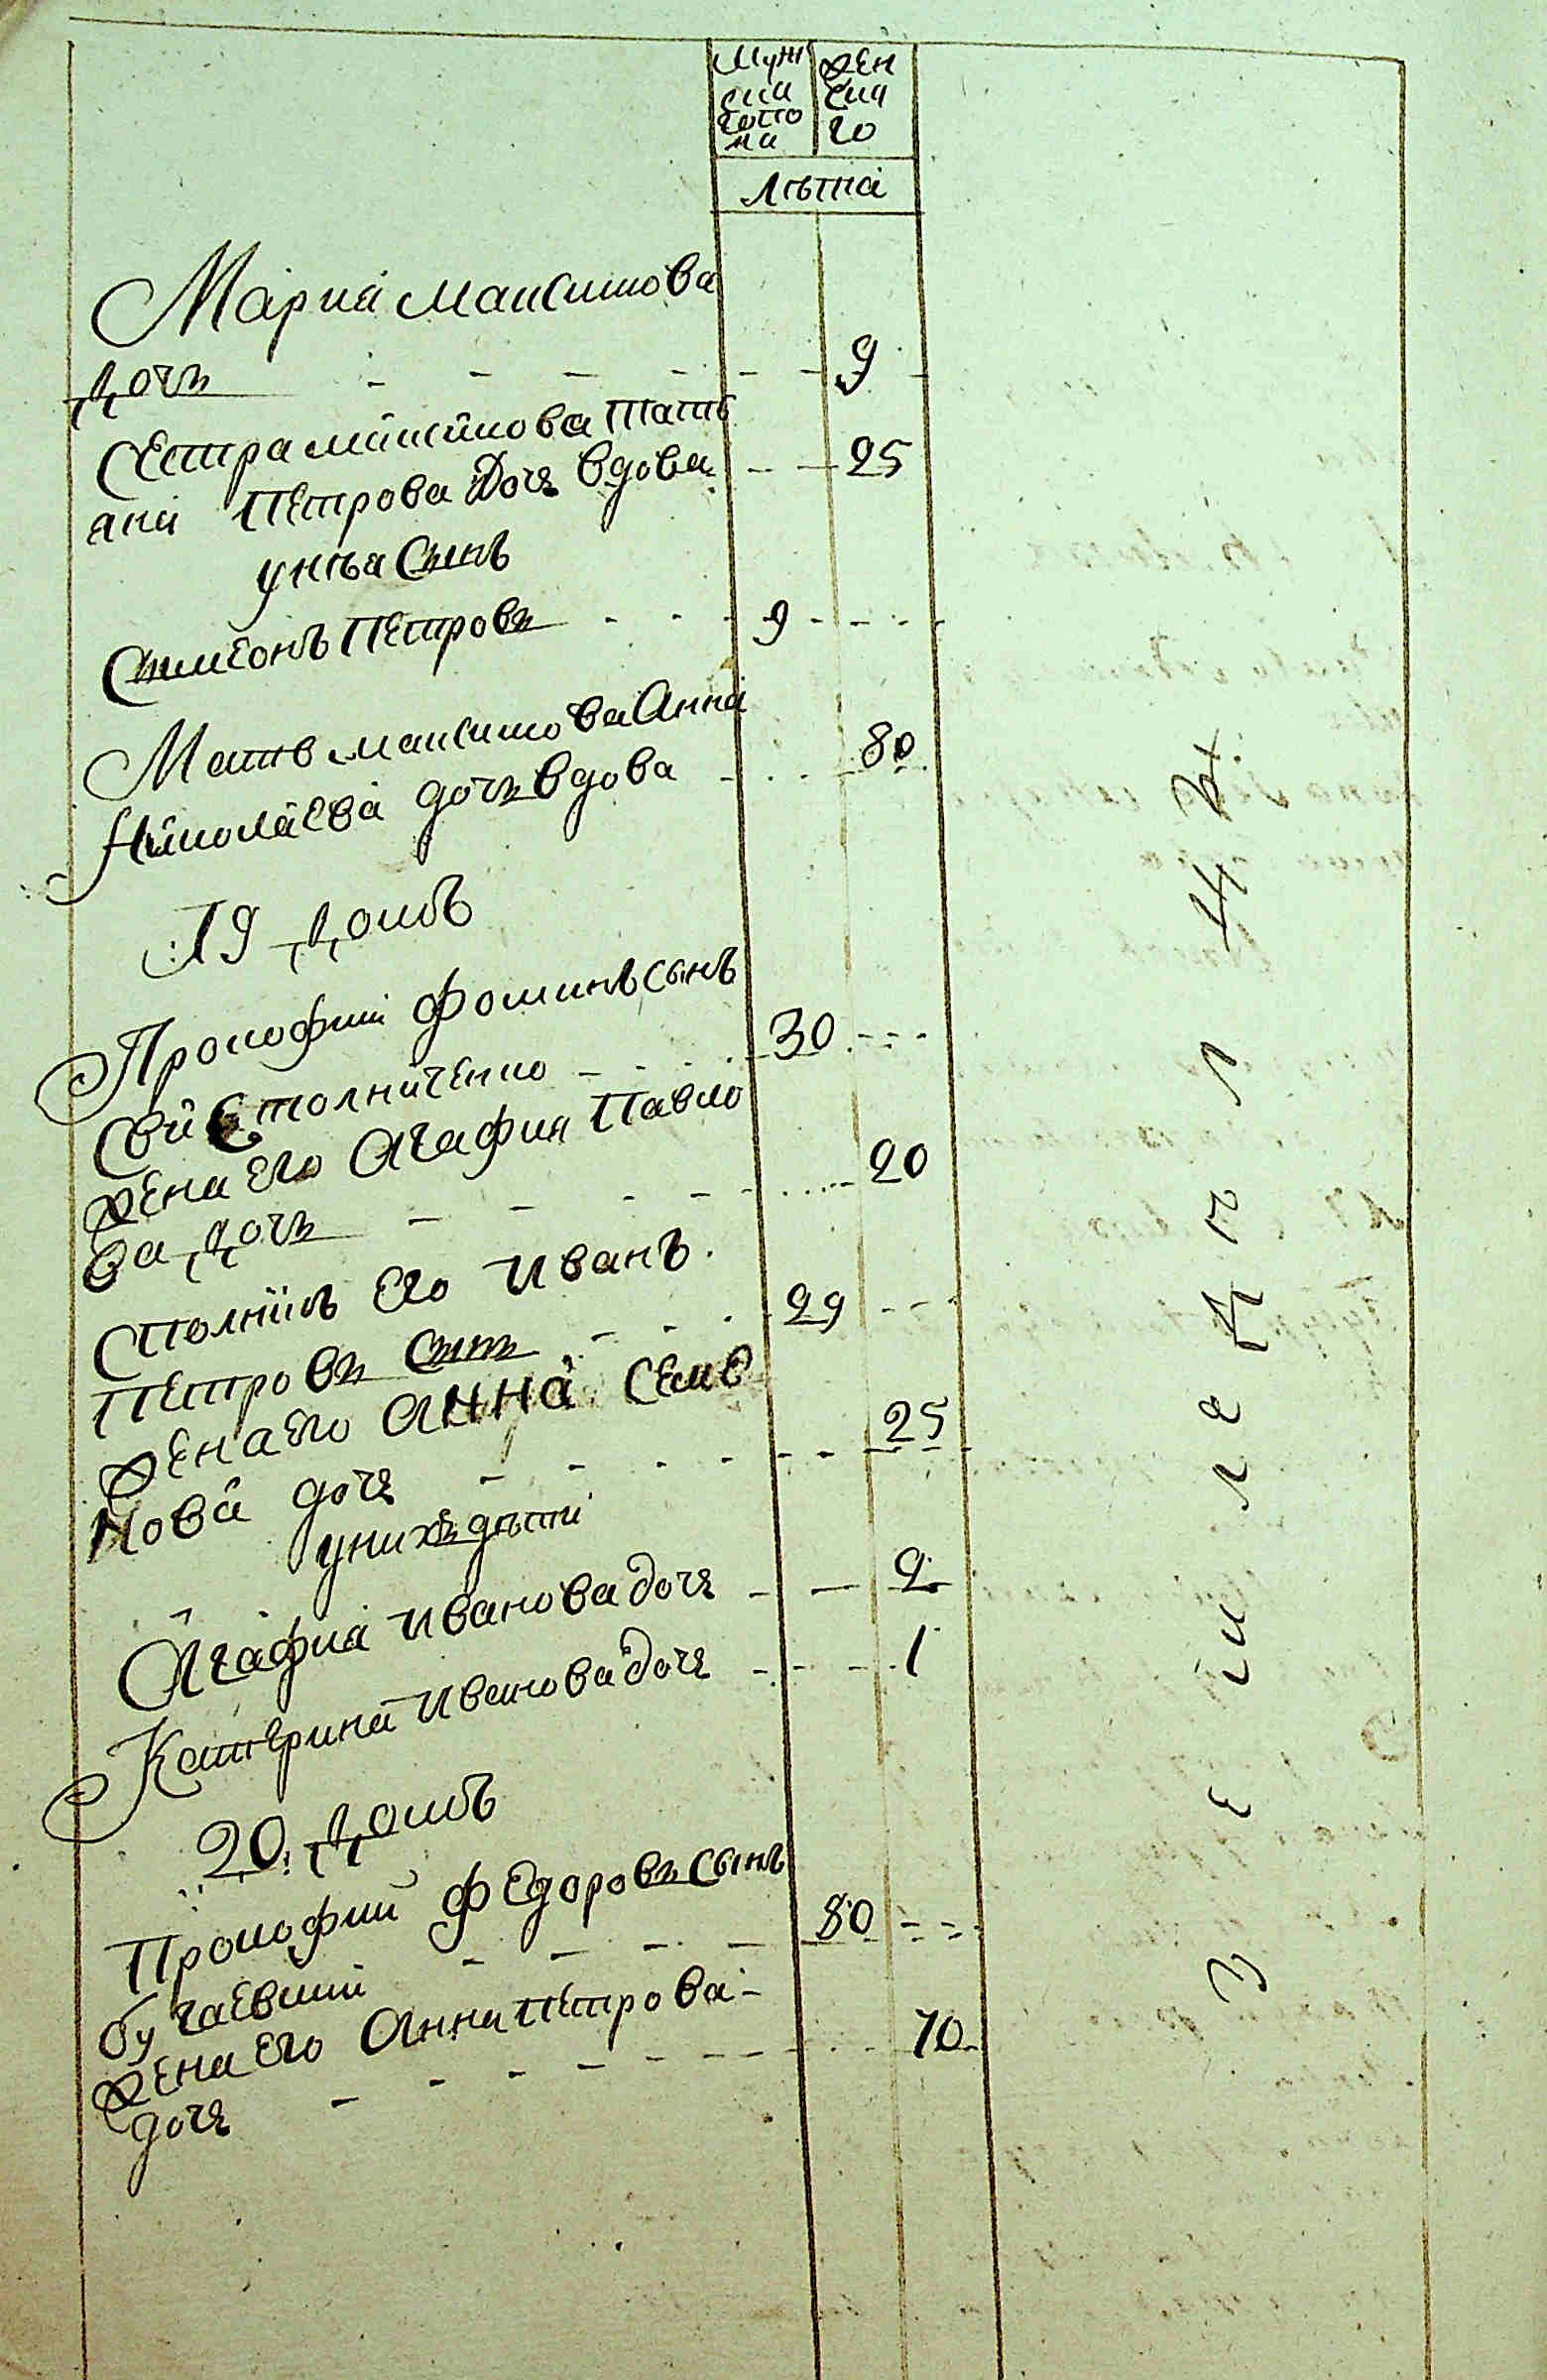 Муж
ска
гопо
ла
жен
ска
го
Лѣта
Мария Максимова
дочъ - - - - - - 9
Сестра Максимова Тать
яна Петрова дочь вдова - - 25
У нѣя сынъ
Симеонъ Петровъ - - - 9 - - -
Мать Максимова Анна
Николаева дочъ вдова - - - 80
19 домъ
Прокофий Фоминъ сынъ
Столниченко - - - 30 - - -
жена его Агафия Павло
ва дочъ - - - - - 20
Иванъ
Петровъ сынъ - - - 29 - - -
жена его Анна Семе
нова дочь - - - - - 25
У нихъ дѣти
Агафия Иванова дочь - - 2
Катерина Иванова дочь - - - 1
20 домъ
Прокофий Федоровъ сынъ
- - - - 80 - - -
жена его Анна Петрова -
дочь - - - - - - 70